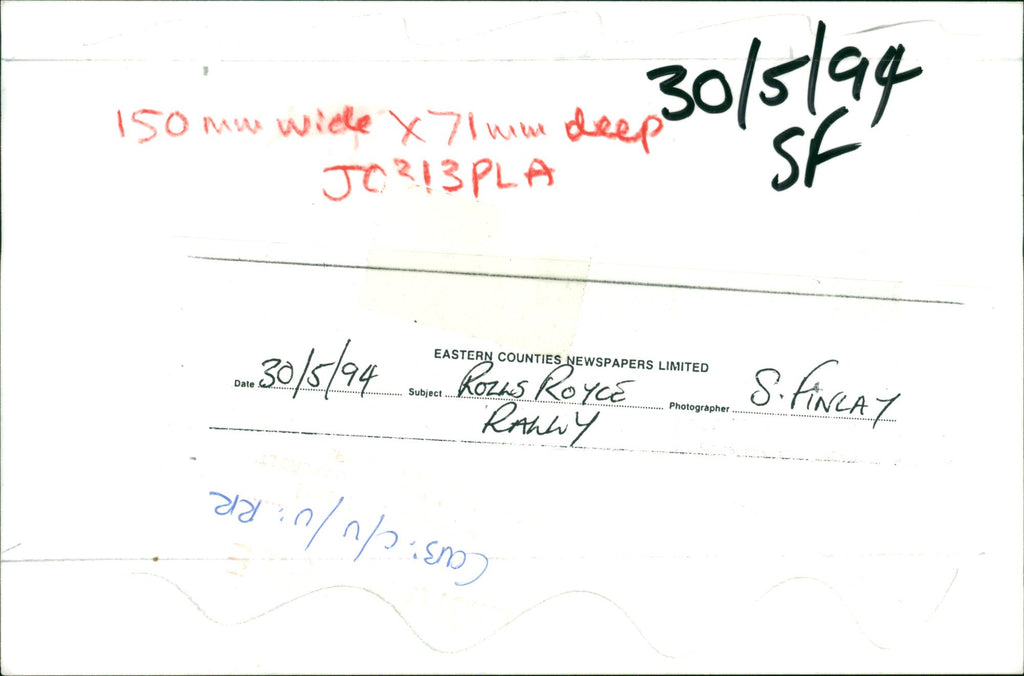 30/5/94
SF
150 mm wide X 71mm deep
J0313PLA
EASTERN COUNTIES NEWSPAPERS LIMITED
Date 30/5/94 Subject ROLLS ROYCE Photographer S. FINLAY
RALLY